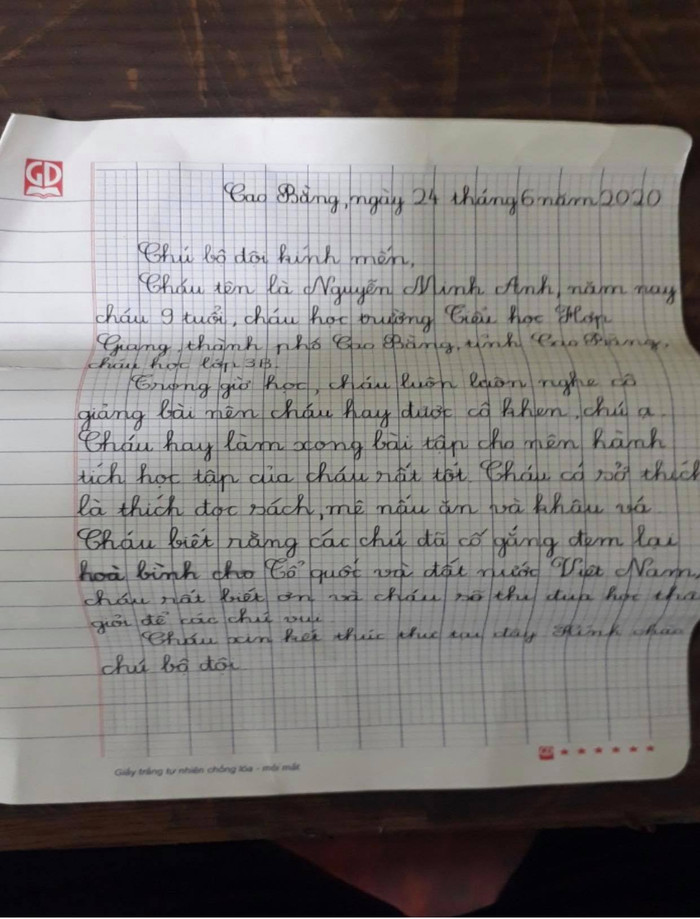 GD
Cao Bằng, ngày 24 tháng 6 năm 2020
Chú bộ đội kính mến,
Cháu tên là Nguyễn Minh Anh, năm nay
cháu 9 tuổi, cháu học trường Tiểu học Hợp
Giang, thành phố Cao Bằng, tỉnh Cao Bằng,
cháu học lớp 3B.
Trong giờ học, cháu luôn luôn nghe cô
giảng bài nên cháu hay được cô khen, chú ạ.
Cháu hay làm xong bài tập cho nên hành
tích học tập của cháu rất tốt. Cháu có sở thích
là thích đọc sách, mê nấu ăn và khâu vá
Cháu biết rằng các chú đã cố gắng đem lại
hoà bình cho Tổ quốc và đất nước Việt Nam,
cháu rất biết ơn và cháu sẽ thi đua học thậ
giỏi để các chú vui
Cháu xin kết thúc thư tại đây Kính chào
chú bộ đội
Giấy trắng tự nhiên chống lóa - mỏi mắt